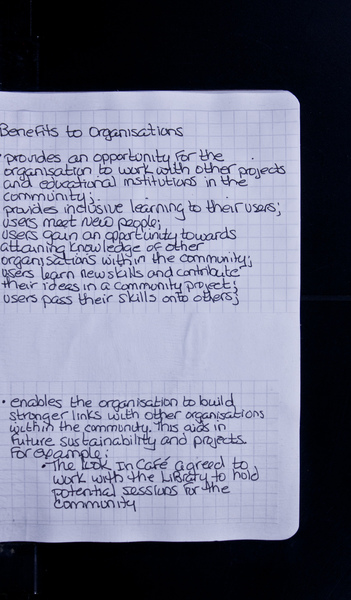 Benefits to Organisations
· provides an opportunity for the
organisation to work with other projects
and educational institutions in the
community;
provides inclusive learning to their users;
users meet new people;
users gain an opportunity towards
attaining knowledge of other
organisations within the community;
users learn new skills and contribute
their ideas in a community project;
users pass their skills onto others;
• enables the organisation to build
stronger links with other organisations
within the community. This aids in
future sustainability and projects.
For example:
• The Look In Café agreed to
work with the Library to hold
potential sessions for the
community